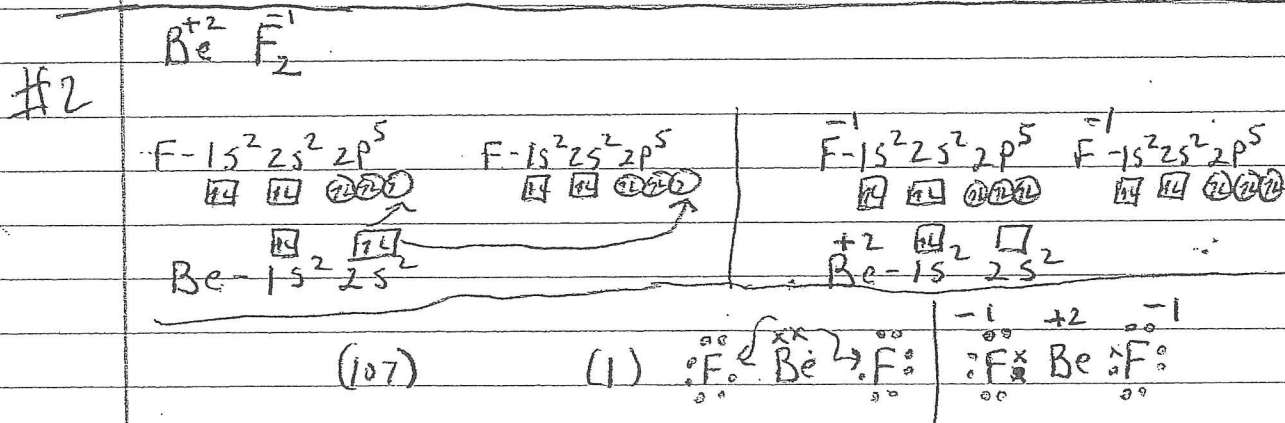 Be⁺² F₂⁻¹
#2
F-1s² 2s² 2p⁵ F-1s² 2s² 2p⁵ F⁻¹-1s² 2s² 2p⁵ F⁻¹-1s² 2s² 2p⁵
Be-1s² 2s² Be⁺²-1s² 2s²
-1 +2 -1
(107) (1) F Be F F Be F